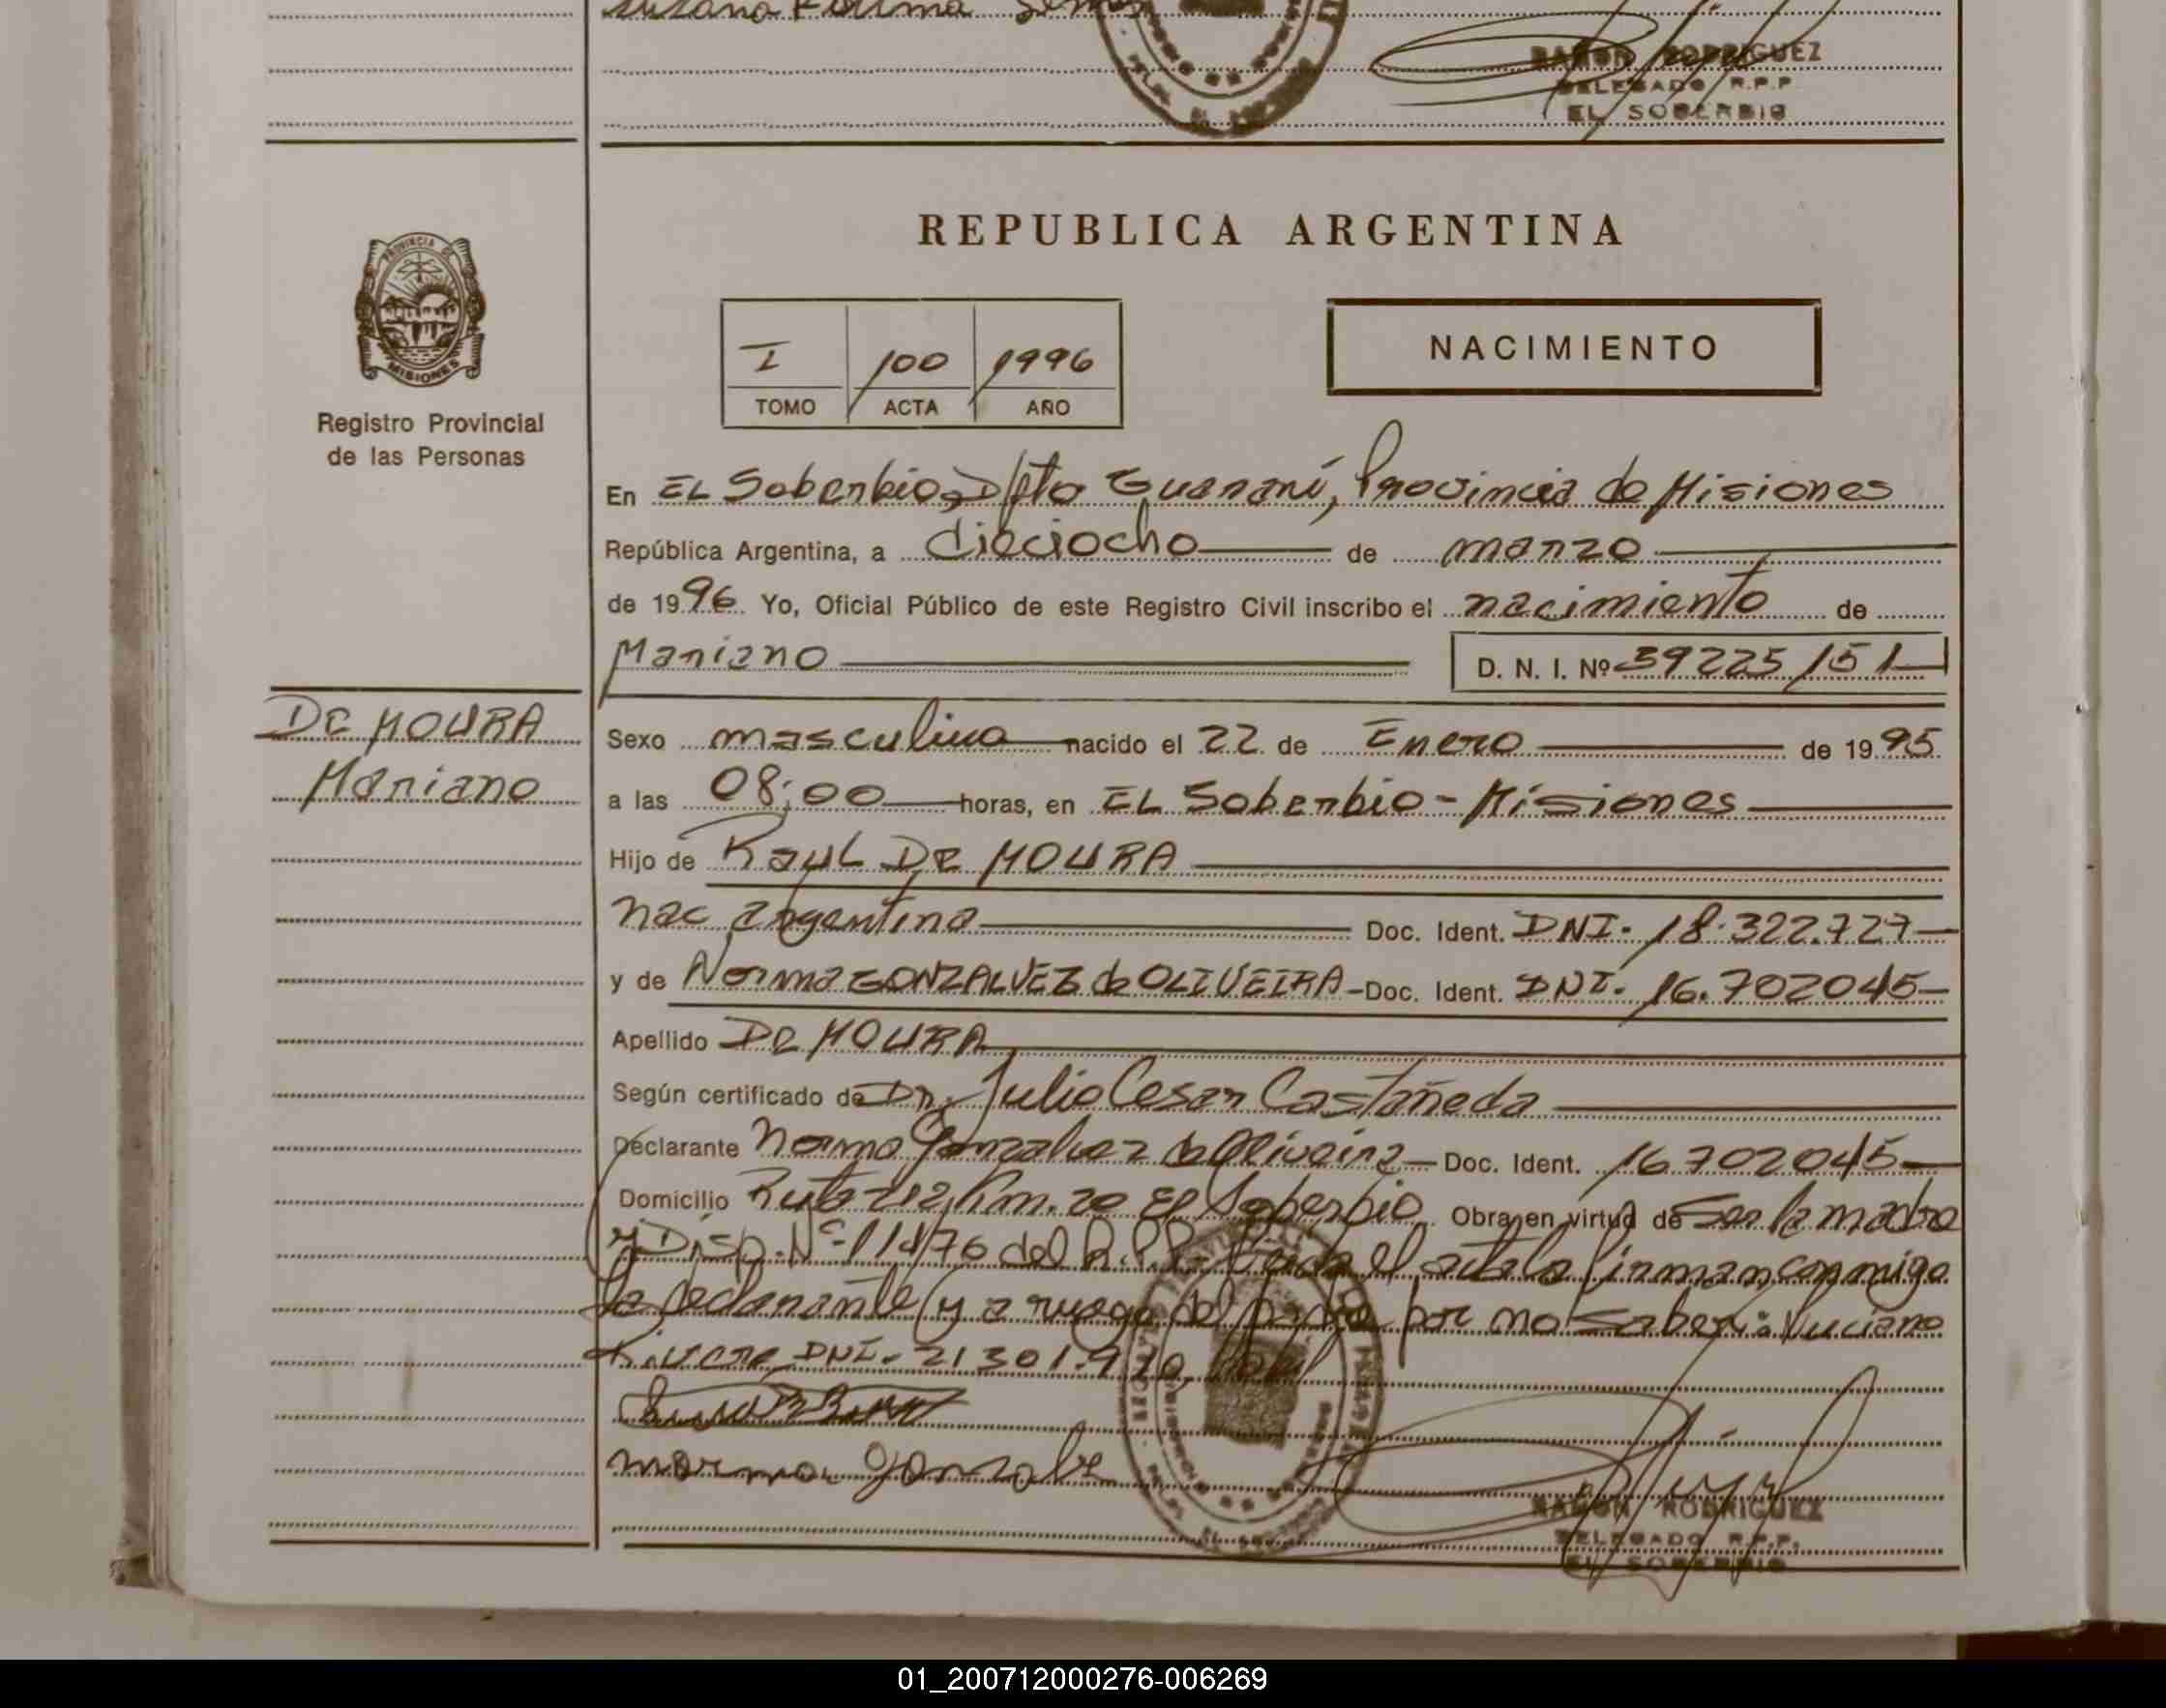 RAMON RODRIGUEZ
DELEGADO R.P.P
EL SOBERBIO
REPUBLICA ARGENTINA
PROVINCIA DE
MISIONES
Registro Provincial
de las Personas
I 100 1996
TOMO ACTA AÑO
NACIMIENTO
En EL Soberbio, Dpto Guaraní, Provincia de Misiones
República Argentina, a dieciocho de marzo
de 1996. Yo, Oficial Público de este Registro Civil inscribo el nacimiento de
Mariano D. N. I. Nº 39225151
DE MOURA
Mariano
Sexo masculino nacido el 22 de Enero de 1995
a las 08:00 horas, en EL Soberbio - Misiones
Hijo de Raul DE MOURA
nac argentina Doc. Ident. DNI. 18.322.727
y de Norma GONZALVEZ de OLIVEIRA - Doc. Ident. DNI. 16.702045
Apellido DE MOURA
Según certificado de Dr. Julio Cesar Castañeda
Declarante Norma Gonzalvez de Oliveira - Doc. Ident. 16702045
Domicilio Ruta 212, Km. 20 El Soberbio Obra en virtud de ser la madre
y Disp. Nº 114/76 del R.P.P. Leida el acta la firman conmigo
la declarante (y a ruego del padre por no saber: Luciano
DNI. 21301.
norma gonzalve
RAMON RODRIGUEZ
DELEGADO R.P.P.
EL SOBERBIO
01_200712000276-006269